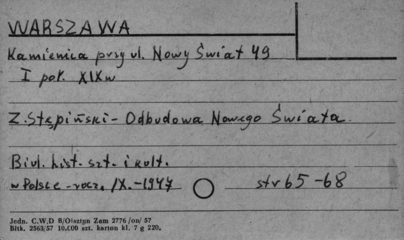 WARSZAWA
Kamienica przy ul. Nowy Świat 49
I poł. XIX w
Z. Stępiński - Odbudowa Nowego Świata.
Biul. hist. szt. i kult.
w Polsce - rocz. IX. - 1947 str 65 - 68
Jedn. C.W.D B/Olsztyn Zam 2776 /on/ 57
Bisk. 2563/57 10.000 szt. karton kl. 7 g 220.